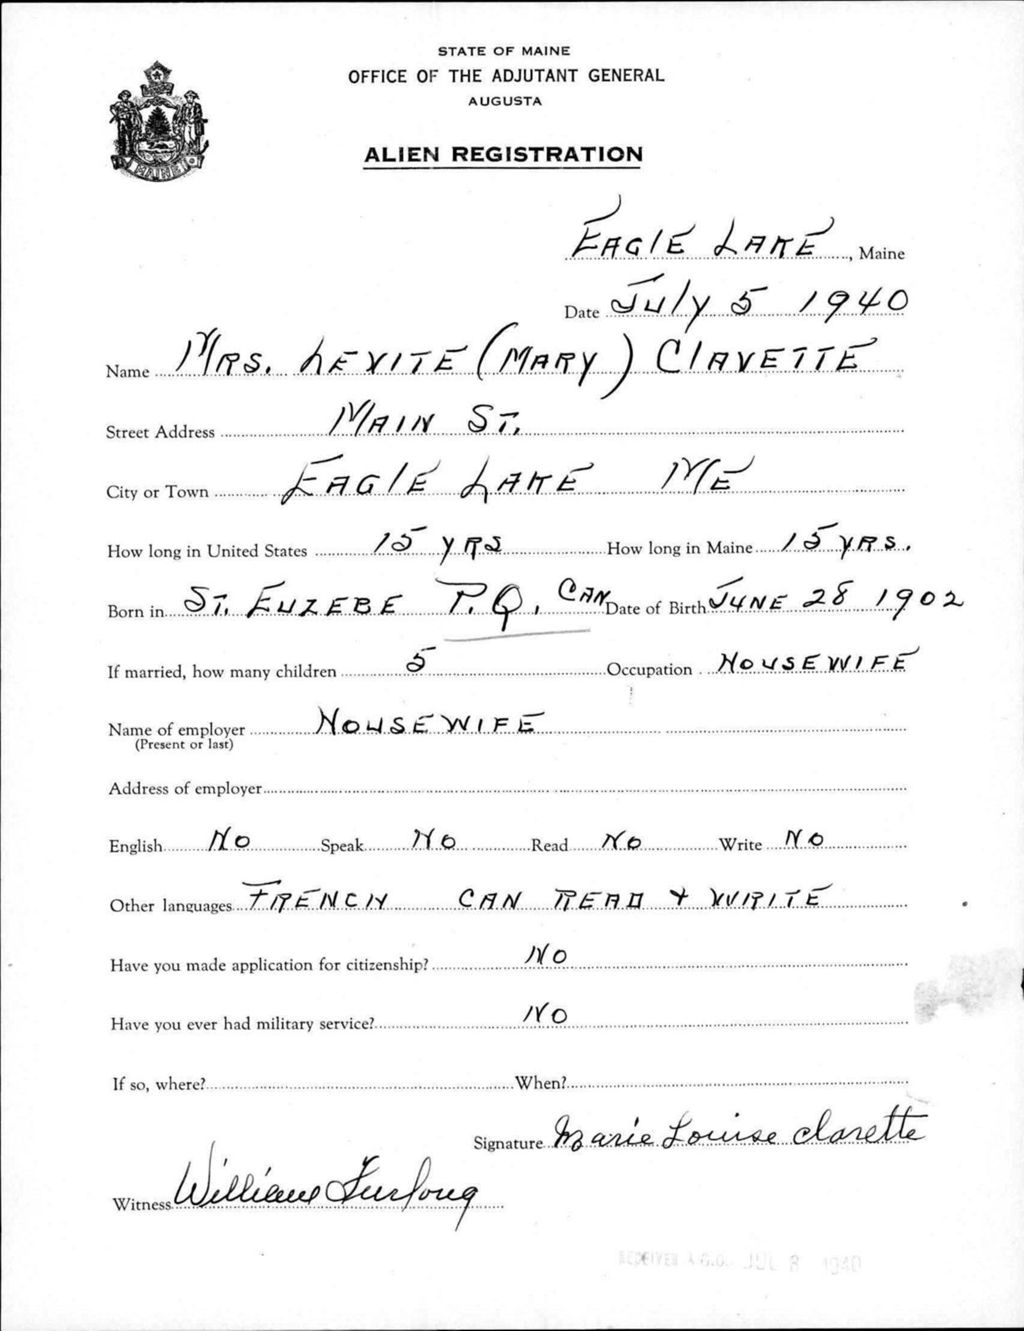 STATE OF MAINE
OFFICE OF THE ADJUTANT GENERAL
AUGUSTA
ALIEN REGISTRATION
MAINE
EAGLE LAKE, Maine
Date JULY 5 1940
Name MRS. LEVITE (MARY) CLAVETTE
Street Address MAIN ST.
City or Town EAGLE LAKE ME
How long in United States 15 YRS How long in Maine 15 YRS.
Born in ST. EUZEBE P.Q. CAN Date of Birth JUNE 28 1902
If married, how many children 5 Occupation HOUSEWIFE
Name of employer HOUSEWIFE
(Present or last)
Address of employer
English NO Speak NO Read NO Write NO
Other languages FRENCH CAN READ + WRITE
Have you made application for citizenship? NO
Have you ever had military service? NO
If so, where? When?
Signature Marie Louise Clavette
Witness William Furlong
RECEIVED A.G.O. JUL 8 1940